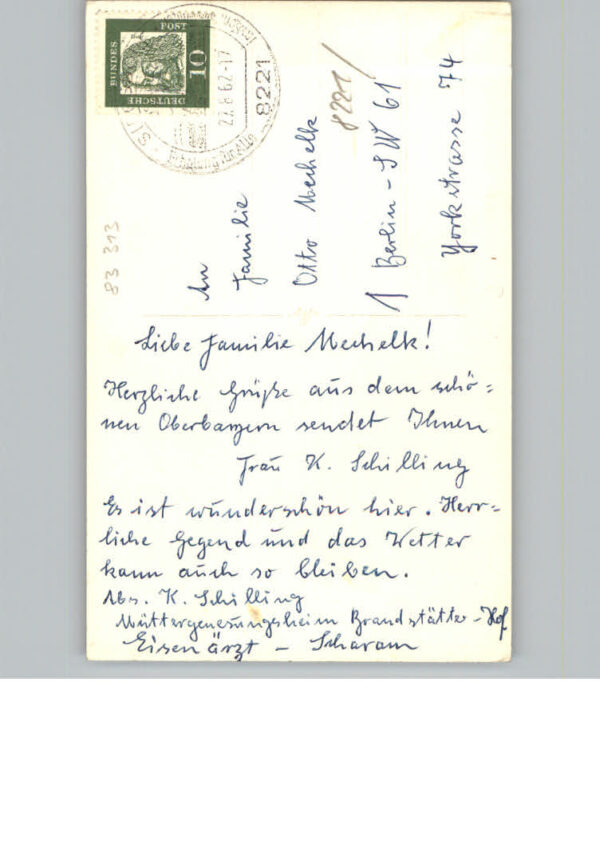 DEUTSCHE
BUNDES
POST
10
22.8.62-17
8221
8221/
An
Familie
Otto Mechelk
1 Berlin-SW 61
Yorkstrasse 74
83 313
Liebe Familie Mechelk!
Herzliche Grüße aus dem schö=
nen Oberbayern sendet Ihnen
Frau K. Schilling
Es ist wunderschön hier. Herr=
liche Gegend und das Wetter
kann auch so bleiben.
Abs. K. Schilling
Müttergenesungsheim Brandstätter-Hof
Eisenärzt - Scharam